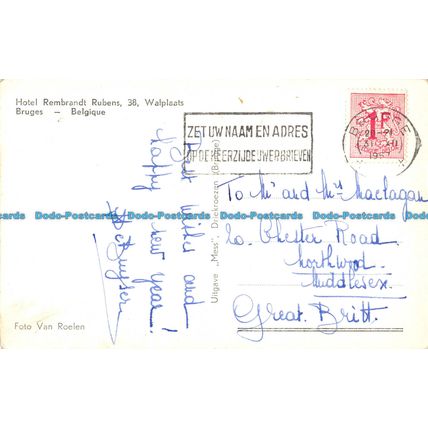 Hotel Rembrandt Rubens, 38, Walplaats
Bruges — Belgique
ZET UW NAAM EN ADRES
OP DE KEERZIJDE UWER BRIEVEN
1F
BRUGGE
Best wishes and
happy new year!
Uitgave „Mess", Driekroezen (Brugge)
To Mr and Mrs Maclagan
20. Chester Road
Northwood
Middlesex.
Great. Britt.
Foto Van Roelen
Dodo-Postcards Dodo-Postcards Dodo-Postcards Dodo-Postcards
Dodo-Postcards Dodo-Postcards Dodo-Postcards Dodo-Postcards